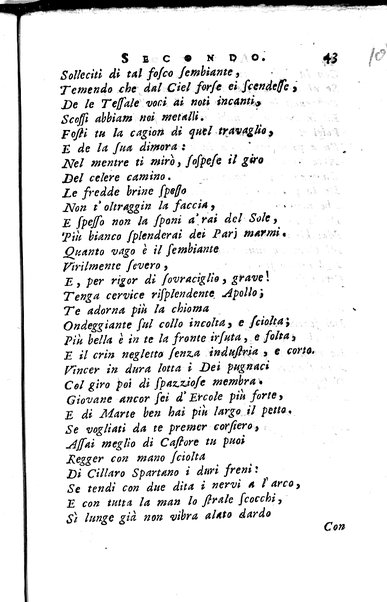 SECONDO. 43
Solleciti di tal fosco sembiante,
Temendo che dal Ciel forse ei scendesse,
De le Tessale voci ai noti incanti,
Scossi abbiam noi metalli.
Fosti tu la cagion di quel travaglio,
E de la sua dimora:
Nel mentre ti mirò, sospese il giro
Del celere camino.
Le fredde brine spesso
Non t'oltraggin la faccia,
E spesso non la sponi a'rai del Sole,
Più bianco splenderai dei Parj marmi.
Quanto vago è il sembiante
Virilmente severo,
E, per rigor di sovraciglio, grave!
Tenga cervice risplendente Apollo;
Te adorna più la chioma
Ondeggiante sul collo incolta, e sciolta;
Più bella è in te la fronte irsuta, e folta,
E il crin negletto senza industria, e corto.
Vincer in dura lotta i Dei pugnaci
Col giro poi di spazziose membra.
Giovane ancor sei d'Ercole più forte,
E di Marte ben hai più largo il petto.
Se vogliati da te premer corsiero,
Assai meglio di Castore tu puoi
Regger con mano sciolta
Di Cillaro Spartano i duri freni:
Se tendi con due dita i nervi a l'arco,
E con tutta la man lo strale scocchi,
Sì lunge già non vibra alato dardo
Con